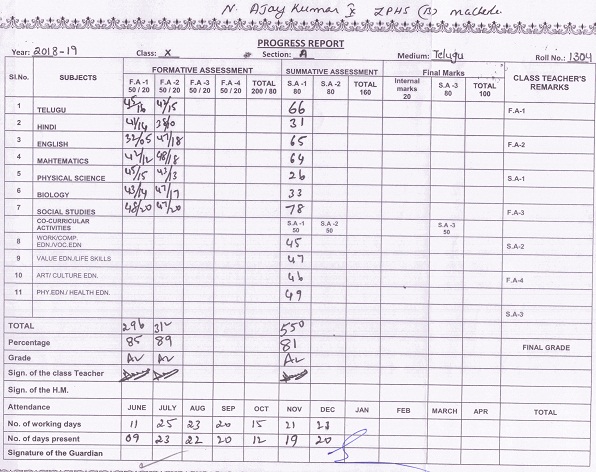 N. Ajay Kumar X ZPHS (B)
PROGRESS REPORT
Year: 2018-19 Class: X Section: A Medium: Telugu Roll No.: 1304
Sl.No. SUBJECTS FORMATIVE ASSESSMENT SUMMATIVE ASSESSMENT Final Marks CLASS TEACHER'S REMARKS
F.A -1 50 / 20 F.A -2 50 / 20 F.A -3 50 / 20 F.A -4 50 / 20 TOTAL 200 / 80 S.A -1 80 S.A -2 80 TOTAL 160 Internal marks 20 S.A -3 80 TOTAL 100
1 TELUGU 45/16 42/15 66 F.A-1
2 HINDI 41/14 31
3 ENGLISH 32/05 47/18 65 F.A-2
4 MAHTEMATICS 42/12 48/18 64
5 PHYSICAL SCIENCE 45/15 43/13 26 S.A-1
6 BIOLOGY 43/14 47/17 33
7 SOCIAL STUDIES 48/20 47/20 78 F.A-3
CO-CURICULAR ACTIVITIES S.A -1 50 S.A -2 50 S.A -3 50
8 WORK/COMP. EDN./VOC.EDN 45 S.A-2
9 VALUE EDN./LIFE SKILLS 47
10 ART/ CULTURE EDN. 46 F.A-4
11 PHY.EDN / HEALTH EDN. 49
S.A-3
TOTAL 296 312 550
Percentage 85 89 81 FINAL GRADE
Grade
Sign. of the class Teacher
Sign. of the H.M.
Attendance JUNE JULY AUG SEP OCT NOV DEC JAN FEB MARCH APR TOTAL
No. of working days 11 25 23 20 15 21 23
No. of days present 09 23 22 20 12 19 20
Signature of the Guardian